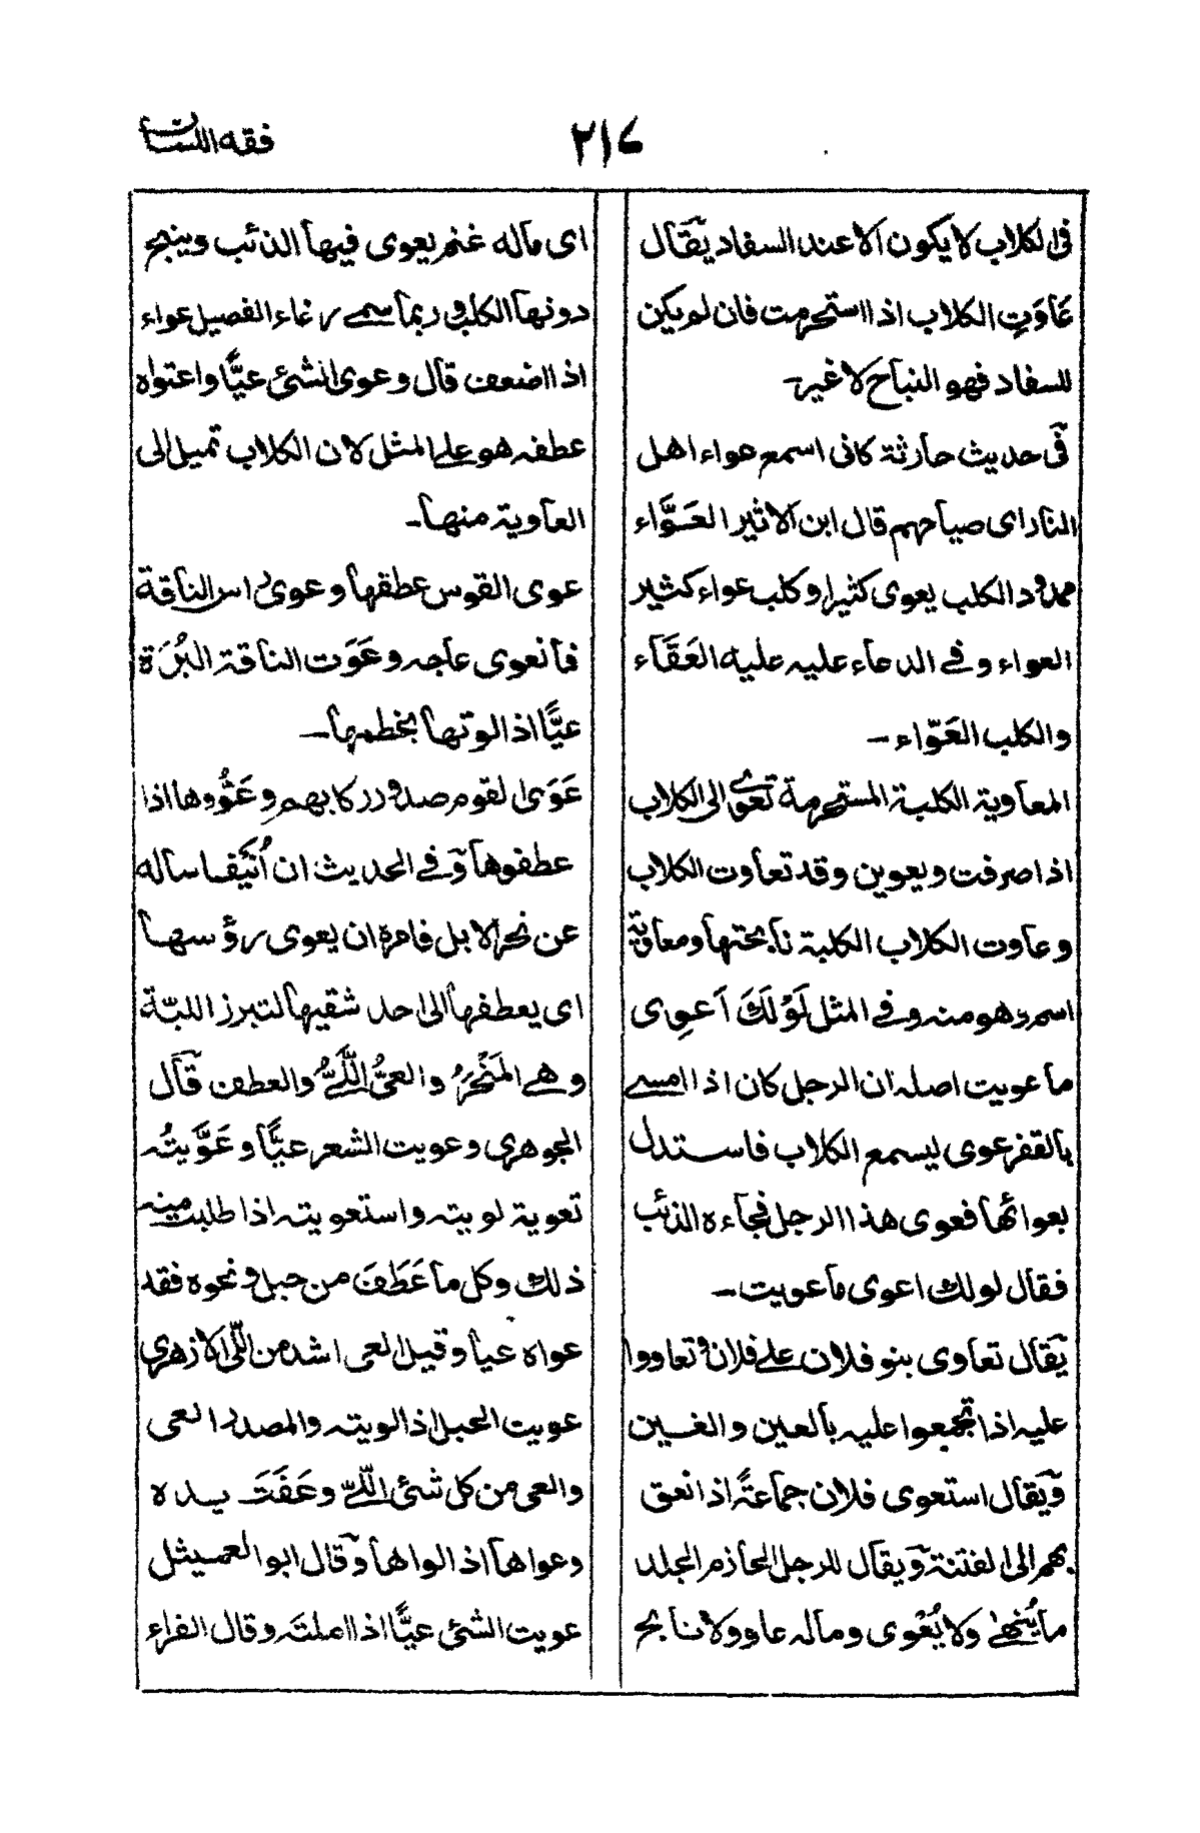 فقه اللسان
٢١٤
فى الكلاب لا يكون الا عند السفاد يقال
عَاوَتِ الكلاب اذا استحرمت فان لم يكن
للسفاد فهو النباح لا غير-
فى حديث حارثة كانى اسمع عواء اهل
النار اى صياحهم قال ابن الاثير العَوَّاء
ممدود الكلب يعوى كثيرا وكلب عواء كثير
العواء وفى الدعاء عليه عليه العَفَاء
والكلب العَوّاء -
المعاوية الكلبة المستحرمة تعوى الى الكلاب
اذا صرفت ويعوين وقد تعاوت الكلاب
وعاوت الكلاب الكلبة نابحتها ومعاوية
اسم وهو منه وفى المثل لَوْ لَكَ اَعوِى
ما عويت اصله ان الرجل كان اذا امسے
بالقفر عوى ليسمع الكلاب فاستدل
بعوائها فعوى هذا الرجل فجاءه الذئب
فقال لو لك اعوى ما عويت-
يقال تعاوى بنو فلان علے فلان وتعاووا
عليه اذا تجمعوا عليه بالعين والغين
ويقال استعوى فلان جماعةً اذا نعق
بهم الى الفتنة ويقال للرجل الحازم الجلد
ما يُنْهٰى ولا يُعْوى وماله عاو ولا نابح
اى ماله غنم يعوى فيها الذئب وينبح
دونها الكلب وربما سمے رغاء الفصيل عواء
اذا ضعف قال وعوى الشئ عيًّا واعتواه
عطفه هو علے المثل لان الكلاب تميل الى
العاوية منها-
عوى القوس عطفها وعوى راس الناقة
فانعوى عاجه وعَوَت الناقة البُرَة
عيًّا اذا لوتها بخطمها-
عَوَى القوم صدور ركابهم وعَوُّوها اذا
عطفوها وفى الحديث ان اُنَيْفا ساله
عن نحر الابل فامره ان يعوى رؤسها
اى يعطفها الى احد شقيها لتبرز اللبّة
وهے المَنْحَرُ والعىُّ اللَّىُّ والعطف قال
الجوهرى وعويت الشعر عيًّا وعَوَّيتُه
تعوية لويته واستعويته اذا طلبت منه
ذلك وكل ما عَطَفَ من حبل ونحوه فقد
عواه عيا وقيل العى اشد من اللّى الازهرى
عويت الحبل اذا لويته والمصدر العى
والعى من كل شئ اللّىّ وعَفَتَ يده
وعواها اذا لواها وقال ابو العميثل
عويت الشئ عيًّا اذا املته وقال الفراء